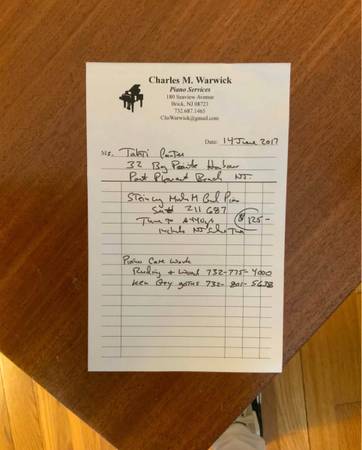 Charles M. Warwick
Piano Services
180 Seaview Avenue
Brick, NJ 08723
732.687.1465
ChsWarwick@gmail.com
Date: 14 June 2017
Ms.
32 Bay Pointe Harbour
Point Pleasant Beach NJ
Steinway Model M Grand Piano
Ser# 211687
Tune to A440cps $125-
Include NJ Sales Tax
Piano Case Work
732-775-4000
Ken 732-